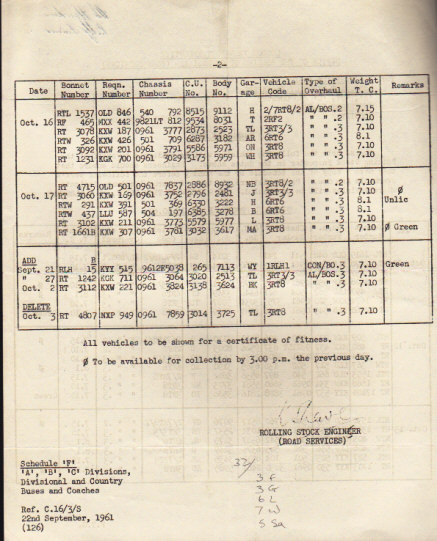 -2-
Date Bonnet Number Reqn. Number Chassis Number C.U. No. Body No. Gar-age Vehicle Code Type of Overhaul Weight T. C. Remarks
Oct. 16 RTL 1537 OLD 846 540 792 8515 9112 H 2/7RT8/2 AL/BOS.2 7.15
RF 465 MXX 442 9821LT 812 9534 8031 T 2RF2 " " .2 7.10
RT 3078 KXW 187 0961 3777 2873 2523 TL 3RT3/3 " " .3 7.10
RTW 326 KXW 426 501 709 6287 3182 AR 6RT6 " " .3 8.1
RT 3092 KXW 201 0961 3791 5586 5971 ON 3RT8 " " .3 7.10
RT 1231 KGK 700 0961 3029 3173 5959 WH 3RT8 " " .3 7.10
Oct. 17 RT 4715 OLD 501 0961 7837 2886 8932 NB 3RT8/2 " " .2 7.10
RT 3060 KXW 169 0961 3752 2796 2481 J 3RT3/3 " " .3 7.10 Ø
RTW 291 KXW 391 501 369 6330 3222 H 6RT6 " " .3 8.1 Unlic
RTW 437 LLU 587 504 197 6385 3278 B 6RT6 " " .3 8.1
RT 3102 KXW 211 0961 3773 5579 5977 L 3RT8 " " .3 7.10
RT 1661B KXW 307 0961 3781 3032 3617 MA 3RT8 " " .3 7.10 Ø Green
ADD B
Sept. 21 RLH 15 KYY 515 9612E5038 265 7113 WY 1RLH1 CON/BO.3 7.10 Green
" 27 RT 1242 KGK 711 0961 3064 3020 2513 TL 3RT3/3 AL/BO.3 7.10
Oct. 2 RT 3112 KXW 221 0961 3824 3138 3624 BK 3RT8 " " .3 7.10
DELETE
Oct. 3 RT 4807 NXP 949 0961 7859 3014 3725 TL 3RT8 " " .3 7.10
All vehicles to be shown for a certificate of fitness.
Ø To be available for collection by 3.00 p.m. the previous day.
ROLLING STOCK ENGINEER
(ROAD SERVICES)
Schedule 'F'
'A', 'B', 'C' Divisions,
Divisional and Country
Buses and Coaches
Ref. C.16/3/S
22nd September, 1961
(126)
33/
3 F
3 G
6 L
7 W
5 Sa